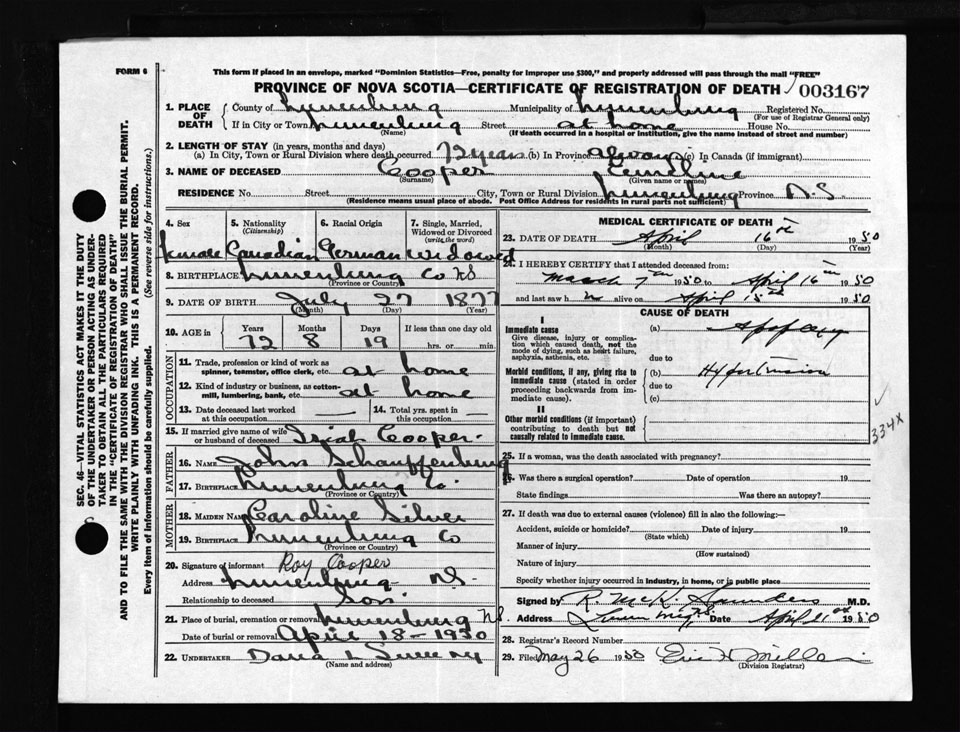 FORM 6
This form if placed in an envelope, marked "Dominion Statistics—Free, penalty for improper use $300," and properly addressed will pass through the mail "FREE"
PROVINCE OF NOVA SCOTIA—CERTIFICATE OF REGISTRATION OF DEATH 003167
1. PLACE OF DEATH County of Lunenburg Municipality of Lunenburg Registered No.
(For use of Registrar General only)
If in City or Town Lunenburg Street at home House No.
(Name) (If death occurred in a hospital or institution, give the name instead of street and number)
2. LENGTH OF STAY (in years, months and days)
(a) In City, Town or Rural Division where death occurred 72 years (b) In Province always (c) In Canada (if immigrant)
3. NAME OF DECEASED Cooper Emeline
(Surname) (Given name or names)
RESIDENCE No. Street City, Town or Rural Division Lunenburg Province N.S
(Residence means usual place of abode. Post Office Address for residents in rural parts not sufficient)
4. Sex 5. Nationality (Citizenship) 6. Racial Origin 7. Single, Married, Widowed or Divorced (write the word)
Female Canadian German widowed
8. BIRTHPLACE Lunenburg Co NS
(Province or Country)
9. DATE OF BIRTH July 27 1877
(Month) (Day) (Year)
10. AGE in Years Months Days If less than one day old
72 8 19 hrs. or min.
OCCUPATION
11. Trade, profession or kind of work as spinner, teamster, office clerk, etc. at home
12. Kind of industry or business, as cotton-mill, lumbering, bank, etc. at home
13. Date deceased last worked at this occupation 14. Total yrs. spent in this occupation
15. If married give name of wife or husband of deceased Cooper
FATHER
16. NAME John Schauffenburg
17. BIRTHPLACE Lunenburg Co.
(Province or Country)
MOTHER
18. MAIDEN NAME Caroline Silver
19. BIRTHPLACE Lunenburg Co
(Province or Country)
20. Signature of informant Roy Cooper
Address Lunenburg NS.
Relationship to deceased Son.
21. Place of burial, cremation or removal Lunenburg NS.
Date of burial or removal April 18-1950
22. UNDERTAKER Dana L Sweeny
(Name and address)
MEDICAL CERTIFICATE OF DEATH
23. DATE OF DEATH April 16th 1950
(Month) (Day) (Year)
24. I HEREBY CERTIFY that I attended deceased from:
March 7th 1950 to April 16th 1950
and last saw h alive on April 15th 1950
CAUSE OF DEATH
I
Immediate cause
Give disease, injury or complication which caused death, not the mode of dying, such as heart failure, asphyxia, asthenia, etc.
(a) Apoplexy
due to
Morbid conditions, if any, giving rise to immediate cause (stated in order proceeding backwards from immediate cause).
(b) Hypertension
due to
(c)
II
Other morbid conditions (if important) contributing to death but not causally related to immediate cause.
334X
25. If a woman, was the death associated with pregnancy?
26. Was there a surgical operation? Date of operation 19
State findings Was there an autopsy?
27. If death was due to external causes (violence) fill in also the following:—
Accident, suicide or homicide? Date of injury 19
(State which)
Manner of injury
(How sustained)
Nature of injury
Specify whether injury occurred in industry, in home, or in public place
Signed by R. McK. Saunders M.D.
Address Date April 21st 1950
28. Registrar's Record Number
29. Filed May 26 1950
(Division Registrar)
SEC. 46—VITAL STATISTICS ACT MAKES IT THE DUTY
OF THE UNDERTAKER OR PERSON ACTING AS UNDER-
TAKER TO OBTAIN ALL THE PARTICULARS REQUIRED
IN THE "CERTIFICATE OF REGISTRATION OF DEATH"
AND TO FILE THE SAME WITH THE DIVISION REGISTRAR WHO SHALL ISSUE THE BURIAL PERMIT.
WRITE PLAINLY WITH UNFADING INK. THIS IS A PERMANENT RECORD.
Every item of information should be carefully supplied. (See reverse side for instructions.)